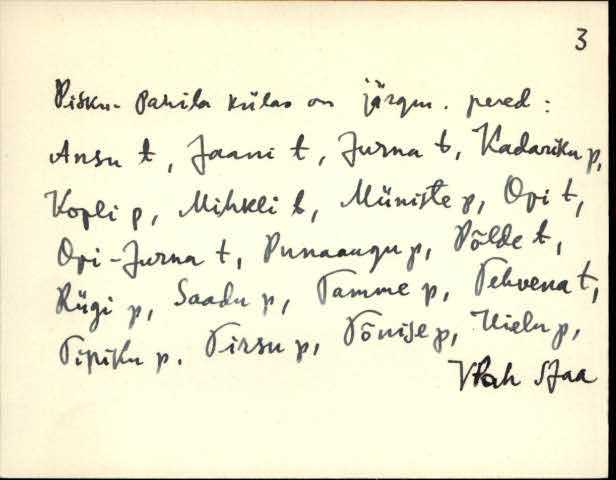 3
Pisku-Pahila külas on järgm. pered:
Ansu t, Jaani t, Jurna t, Kadariku p,
Kopli p, Mihkli t, Müniste p, Opi t,
Opi-Jurna t, Punaaugu p, Põlde t,
Rügi p, Saadu p, Tamme p, Tehvena t,
Tipiku p. Tirsu p, Tõnise p, Uielu p,